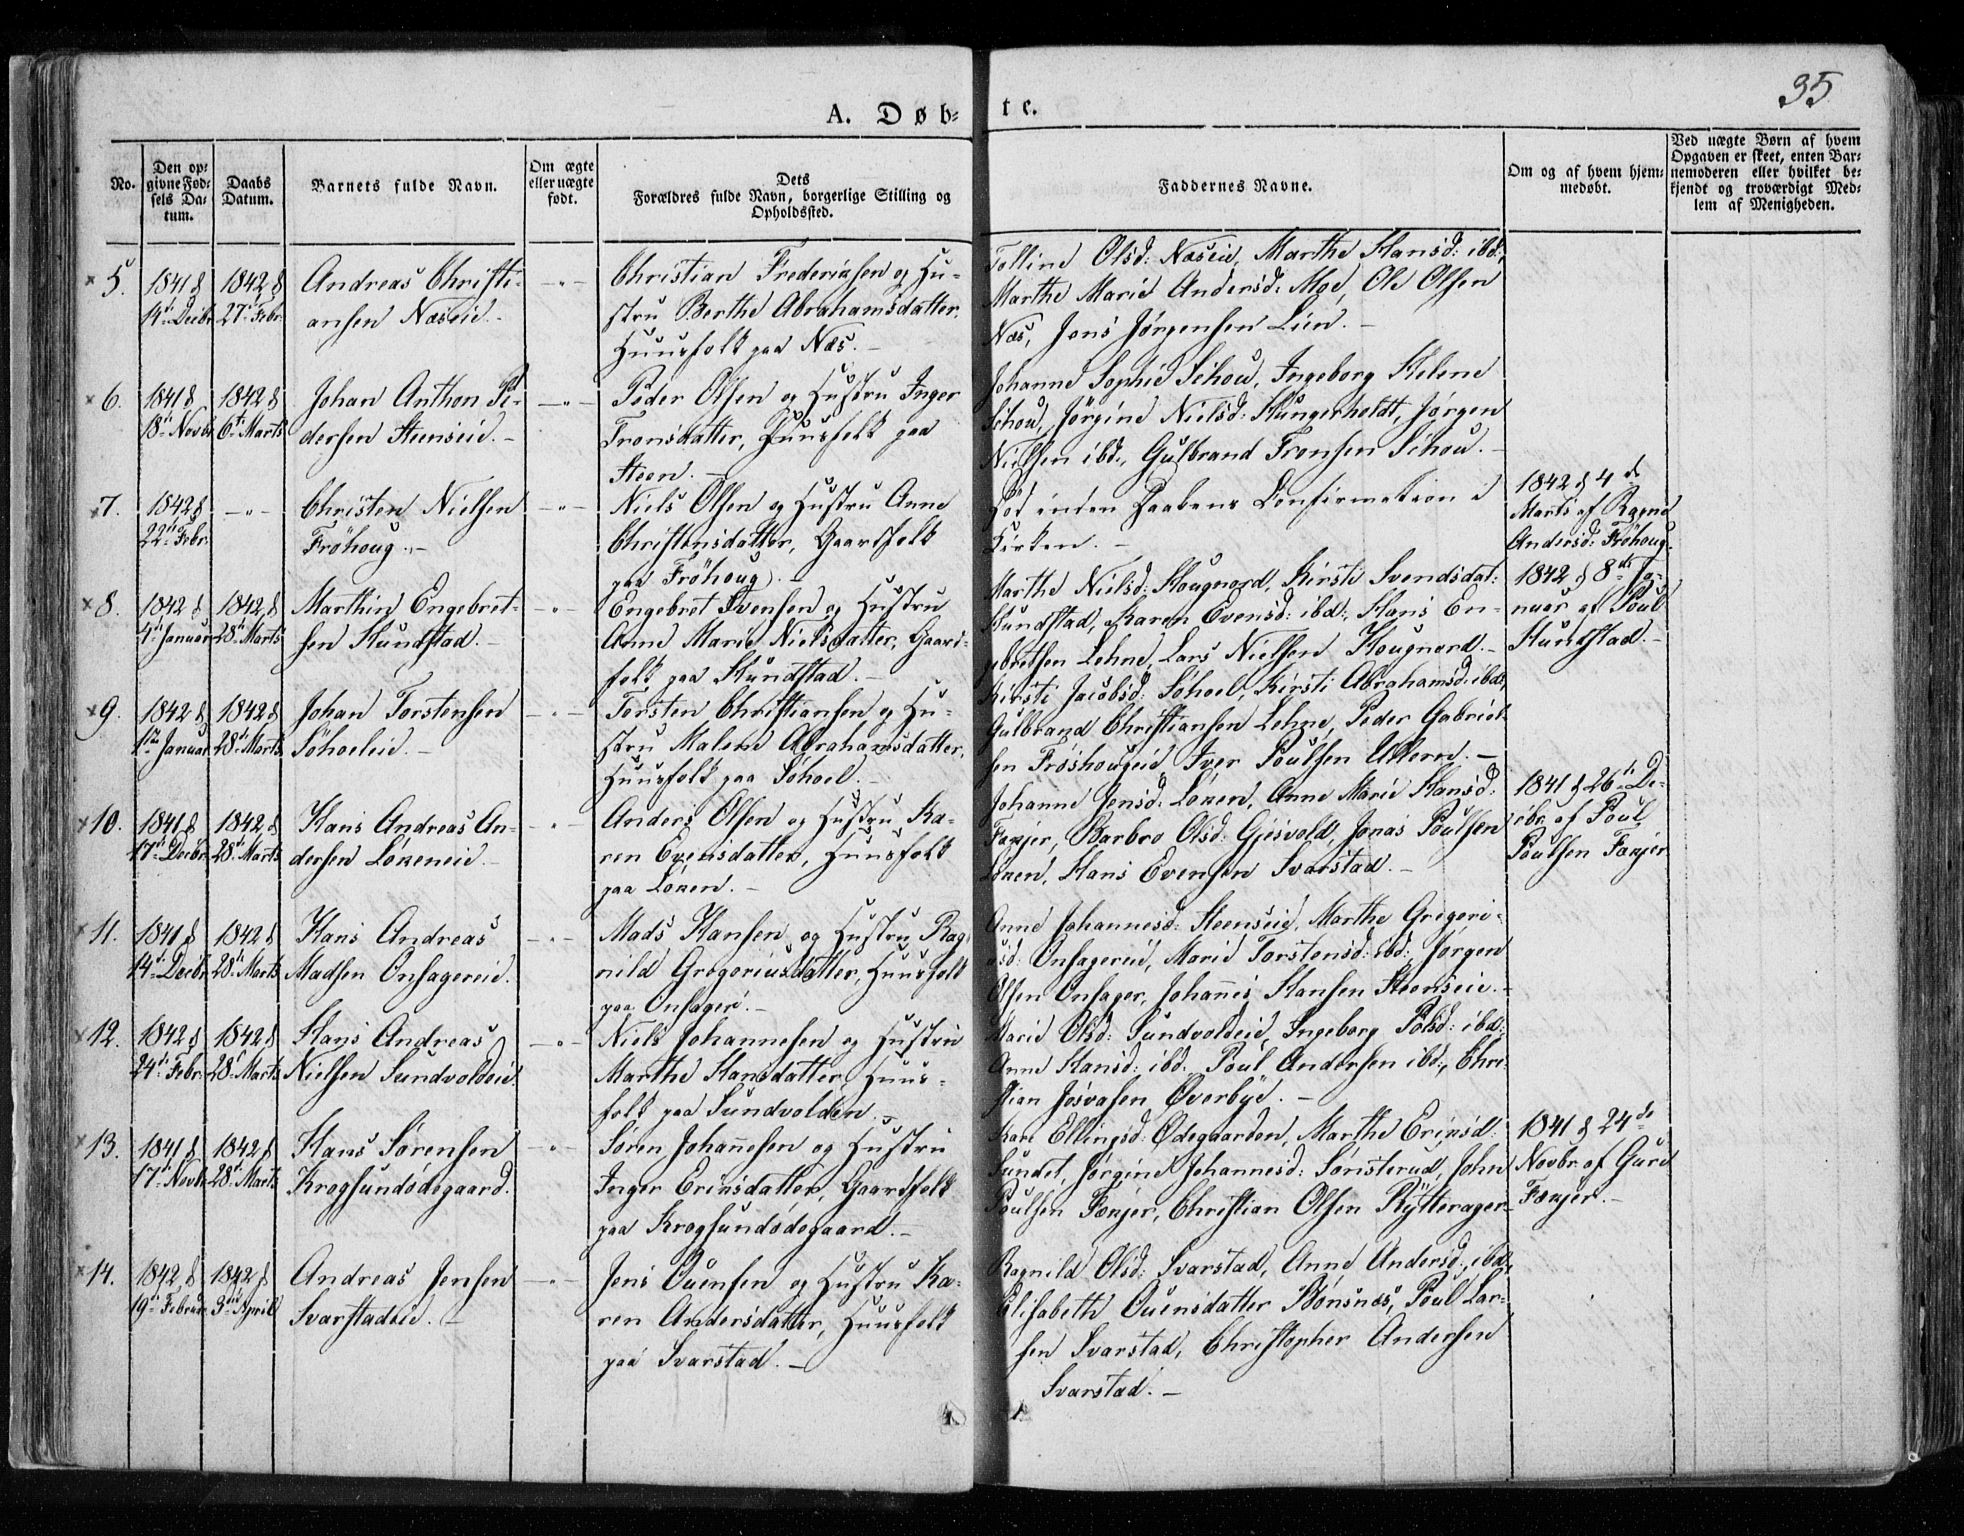 35
A. Døb-
te.
No.
Den op-
givne Fød-
sels Da-
tum.
Daabs
Datum.
Barnets fulde Navn.
Om ægte
eller uægte
født.
Dets
Forældres fulde Navn, borgerlige Stilling og
Opholdssted.
Faddernes Navne.
Om og af hvem hjem-
medøbt.
Ved uægte Børn af hvem
Opgaven er skeet, enten Bar-
nemoderen eller hvilket be-
kjendt og troværdigt Med-
lem af Menigheden.
5.
1841 d
14de Decbr
1842 d
27de Febr.
Andreas Christi-
ansen Næseie.
Christian Frederiksen og Hu-
stru Berthe Abrahamsdatter,
Huusfolk paa Næs.
Olsd: Næseie, Marthe Hansd: ibd:,
Marthe Marie Andersd: Moe, Ole Olsen
Næs, Jens Jørgensen Lien.
6.
1841 d
18de Novbr
1842 d
6te Marts
Johan Anthon Pe-
dersen Steenseie.
Peder Olsen og Hustru Inger
Tronsdatter, Huusfolk paa
Steen.
Johanne Sophie Schou, Ingeborg Helene
Schou, Jørgine Nielsd: Hungerholdt, Jørgen
Nielsen ibd:, Gulbrand Tronsen Schou.
7.
1842 d
22de Febr.
Christen Nielsen
Frøhoug.
Niels Olsen og Hustru Anne
Christensdatter, Gaardfolk
paa Frøhoug.
Død inden Daabens Confirmation i
Kirken.
1842 d 4de
Marts af Ragne
Andersd: Frøhoug.
8.
1842 d
4de Januar
1842 d
28de Marts
Marthin Engebret-
sen Hundstad.
Engebret Evensen og Hustru
Anne Marie Nielsdatter, Gaard-
folk paa Hundstad.
Marthe Nielsd: Hougnord, Kirsti Svendsdat:
Hundstad, Karen Evensd: ibd:, Hans En-
gebretsen Lehne, Lars Nielsen Hougnord.
1842 d 8de Ja-
nuar af Poul
Hundstad.
9.
1842 d
1ste Januar
1842 d
28de Marts
Johan Torstensen
Søhoeleie.
Torsten Christiansen og Hu-
stru Malene Abrahamsdatter,
Huusfolk paa Søhoel.
Kirsti Jacobsd: Søhoel, Kirsti Abrahamsd: ibd:,
Gulbrand Christiansen Lehne, Peder Gabriel-
sen Frøshougeie, Iver Poulsen Ullern.
10.
1841 d
17de Decbr
1842 d
28de Marts
Hans Andreas An-
dersen Løneneie.
Anders Olsen og Hustru Ka-
ren Evensdatter, Huusfolk
paa Lønen.
Johanne Jensd: Lønen, Anne Marie Hansd:
Fækjer, Barbro Olsd: Gjesvold, Jonas Poulsen
Lønen, Hans Evensen Svarstad.
1841 d 26de De-
cbr. af Poul
Poulsen Fækjer
11.
1841 d
14de Decbr
1842 d
28de Marts
Hans Andreas
Madsen Onsagereie.
Mads Hansen og Hustru Rag-
nild Gregoriusdatter, Huusfolk
paa Onsager.
Anne Johannesd: Steenseie, Marthe Gregeri-
usd: Onsagereie, Marie Torstensd: ibd:, Jørgen
Olsen Onsager, Johannes Hansen Steenseie.
12.
1842 d
24de Febr.
1842 d
28de Marts
Hans Andreas
Nielsen Sundvoldeie.
Niels Johannesen og Hustru
Marthe Hansdatter, Huus-
folk paa Sundvolden.
Marie Olsd: Sundvoldeie, Ingeborg Polsd: ibd:,
Anne Hansd: ibd:, Poul Andersen ibd:, Chri-
stian Josvasen Øverbye.
13.
1841 d
17de Novbr
1842 d
28de Marts
Hans Sørensen
Krogsundødegaard.
Søren Johannesen og Hustru
Inger Ericsdatter, Gaardfolk
paa Krogsundødegaard.
Kari Ellingsd: Ødegaarden, Marthe Ericsd:
Sundet, Jørgine Johannesd: Sønsterud, John
Poulsen Fækjer, Christian Olsen Rytterager
1841 d 24de
Novbr. af Guri
Fækjer.
14.
1842 d
19de Februar
1842 d
3die April
Andreas Jensen
Svarstadeie.
Jens Ouensen og Hustru Ka-
ren Andersdatter, Huusfolk
paa Svarstad.
Ragnild Olsd: Svarstad, Anne Andersd: ibd:,
Elisabeth Ouensdatter Bønsnæs, Poul Lar-
sen Svarstad, Christopher Andersen
Svarstad.